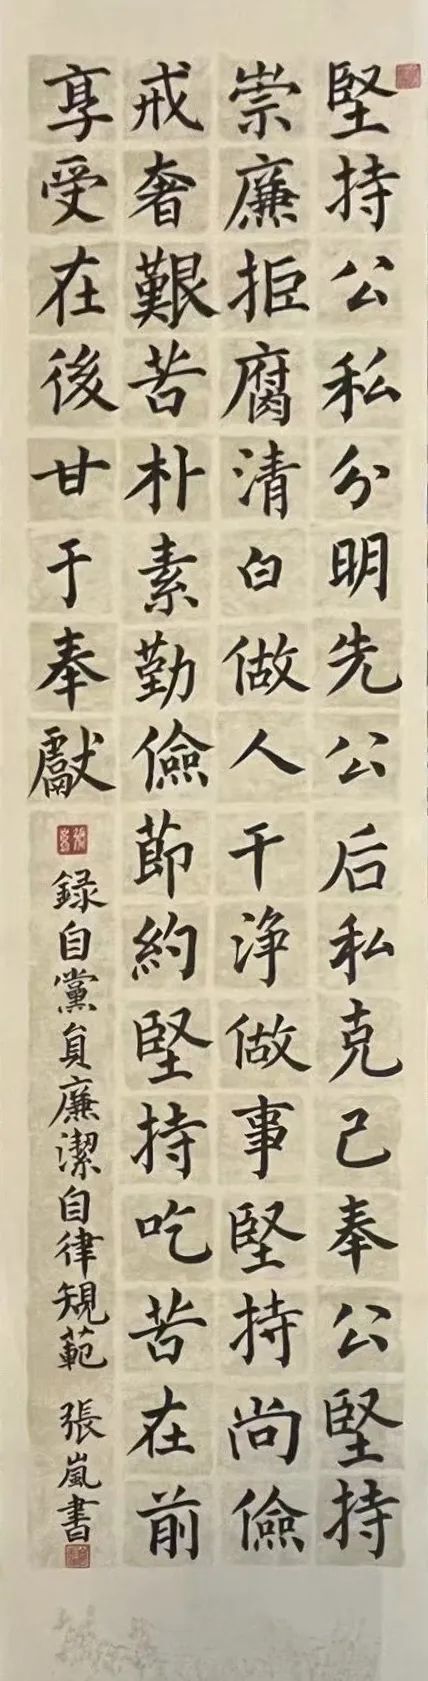 堅持公私分明先公后私克己奉公堅持
崇廉拒腐清白做人干净做事堅持尚儉
戒奢艱苦朴素勤儉節約堅持吃苦在前
享受在後甘于奉獻
録自黨員廉潔自律規範 張嵐書